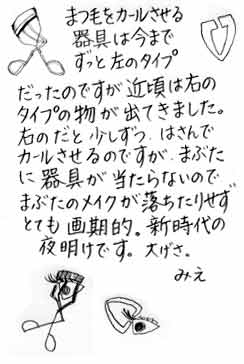 まつ毛をカールさせる
器具は今まで
ずっと左のタイプ
だったのですが近頃は右の
タイプの物が出てきました。
右のだと少しずつ、はさんで
カールさせるのですが、まぶた
に器具が当たらないので
まぶたのメイクが落ちたりせず
とても画期的。新時代の
夜明けです。大げさ。
みえ